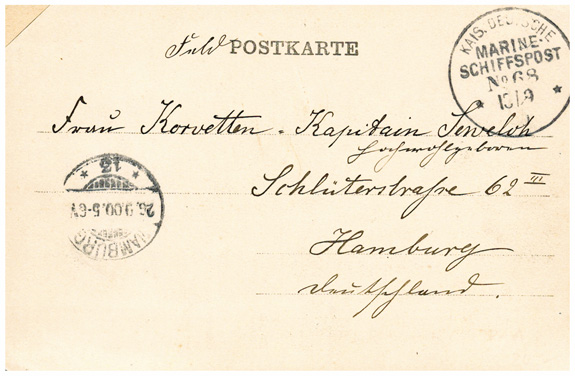 Feld POSTKARTE
KAIS. DEUTSCHE
MARINE-
SCHIFFSPOST
No 68
* 15/9 *
Frau Korvetten-Kapitain Seweloh
Hochwohlgeboren
Schlüterstraße 62 III
Hamburg
Deutschland.
* 12 *
26.9.00.5-6V
HAMBURG